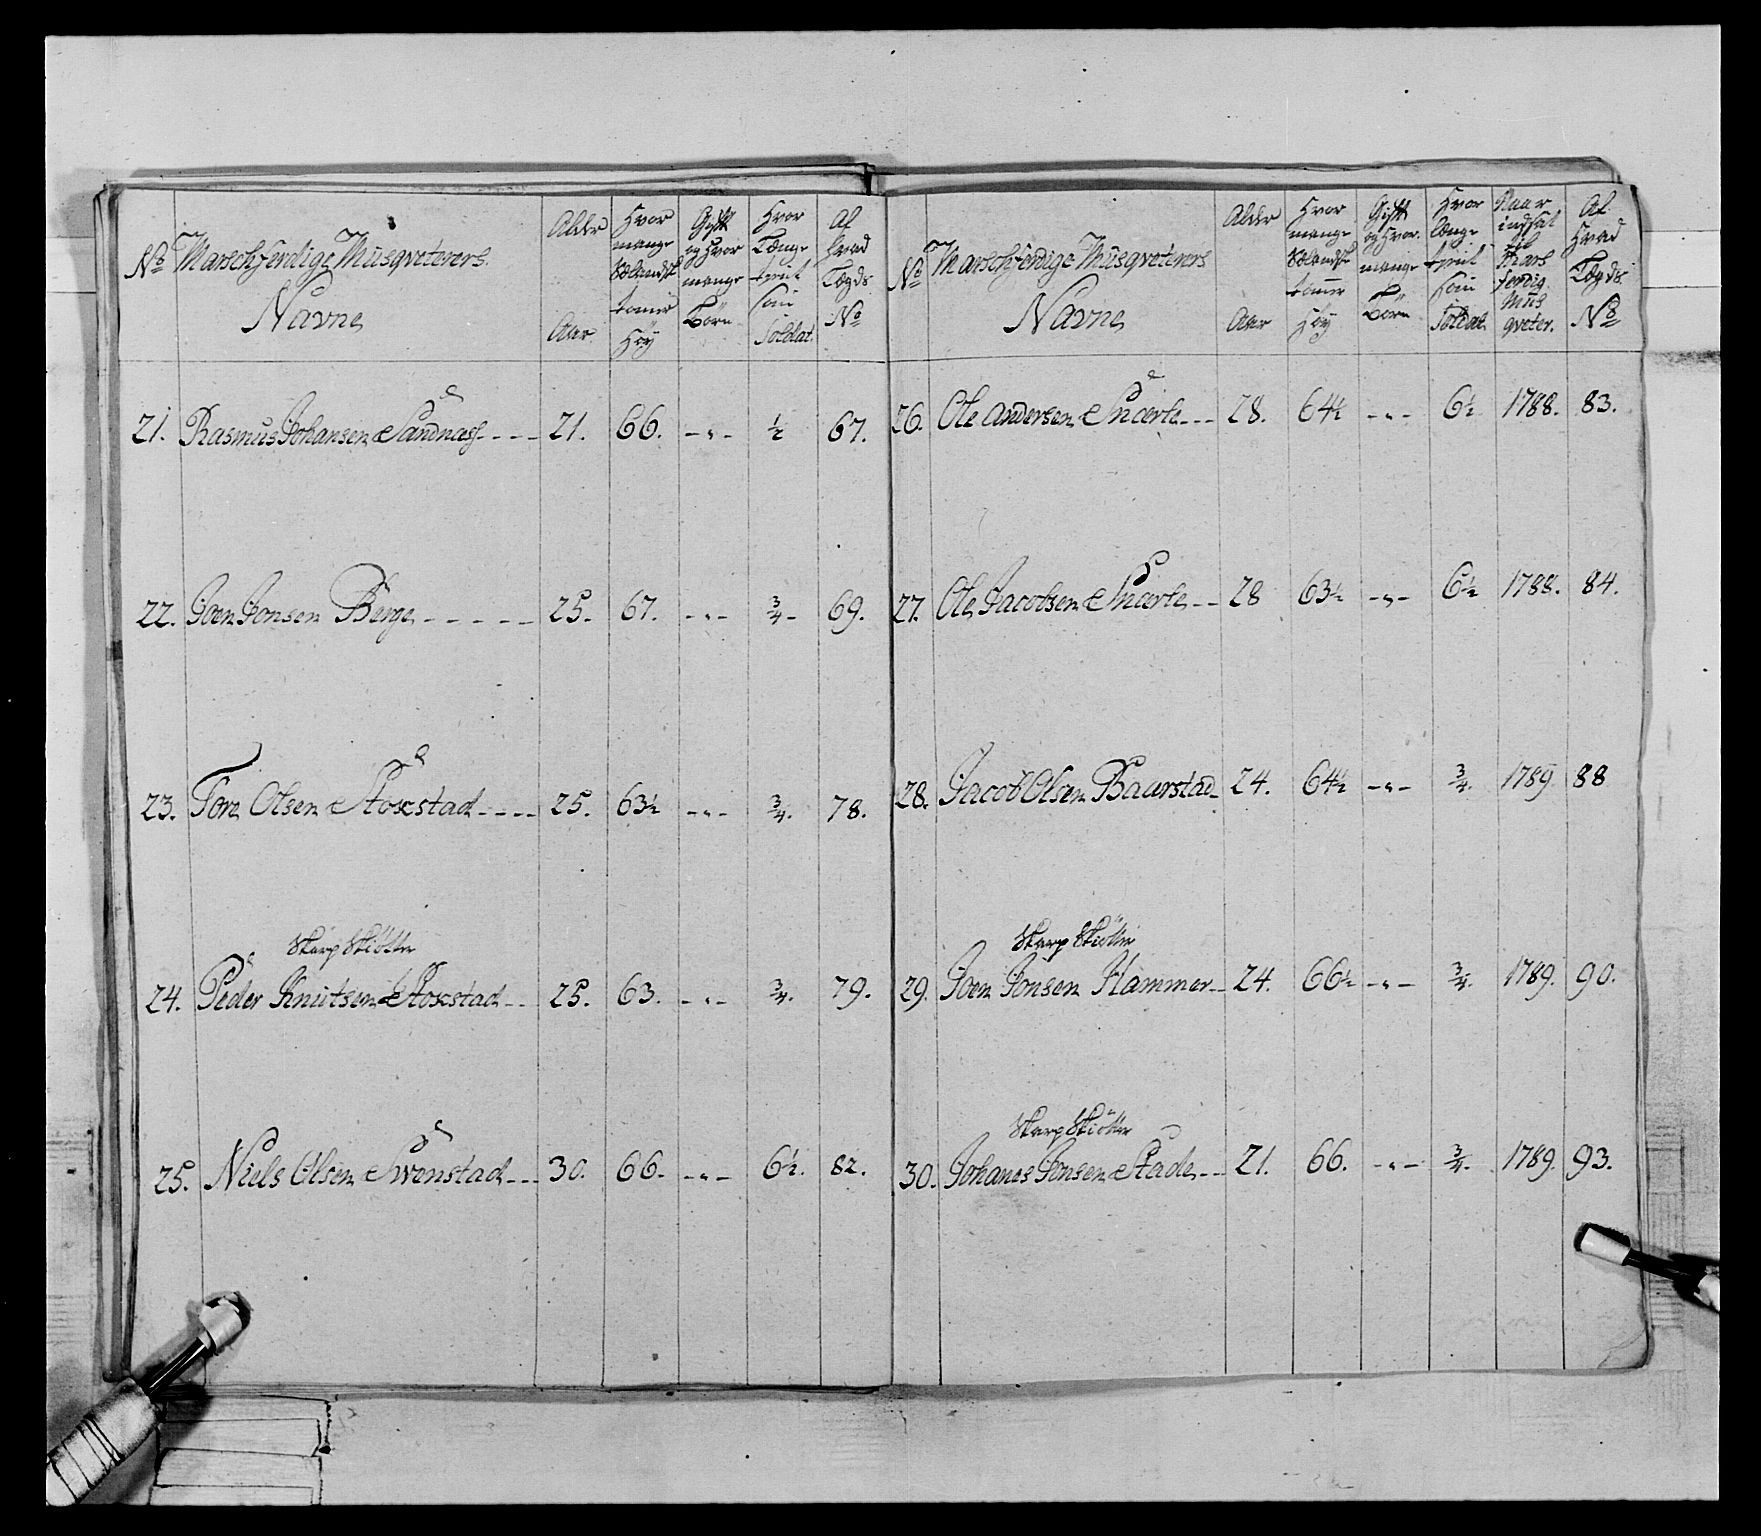 No Marschferdige Musqveterers Navne | Alder Aar | Hvor mange Sælandsk tomer Höy | Gift og Hvor mange Börn | Hvor Længe tjent som Soldat | Af hvad Lægds No
21. Rasmus Johansen Sandnass ---- 21. 66. -"- ½ 67.
22. Joen Jonsen Berge ----- 25. 67. -"- ¾ 69.
23. Tore Olsen Stoxstad ---- 25. 63½ -"- ¾. 78.
Skarp Skiötter
24. Peder Knutsen Stoxstad -- 25. 63. -"- ¾. 79.
25. Niels Olsen Svenstad --- 30. 66. -"- 6½. 82.
No Marschferdige Musqveterers Navne | Alder Aar | Hvor mange Sælandsk tomer Höy | Gift og Hvor mange Börn | Hvor Længe tjent som Soldat | Naar indsat til Mars ferdig Mus qveter. | Af Hvad Lægds No
26. Ole Andersen Snerte --- 28. 64½ -"- 6½ 1788. 83.
27. Ole Jacobsen Snerte -- 28 63½ -"- 6½ 1788. 84.
28. Jacob Olsen Baarstad 24. 64½ -"- ¾. 1789 88
Skarp Skiötter
29. Joen Jonsen Hammer -- 24. 66½ -"- ¾. 1789. 90.
Skarp Skiötter
30. Johanes Jonsen Stade -- 21. 66. -"- ¾. 1789. 93.